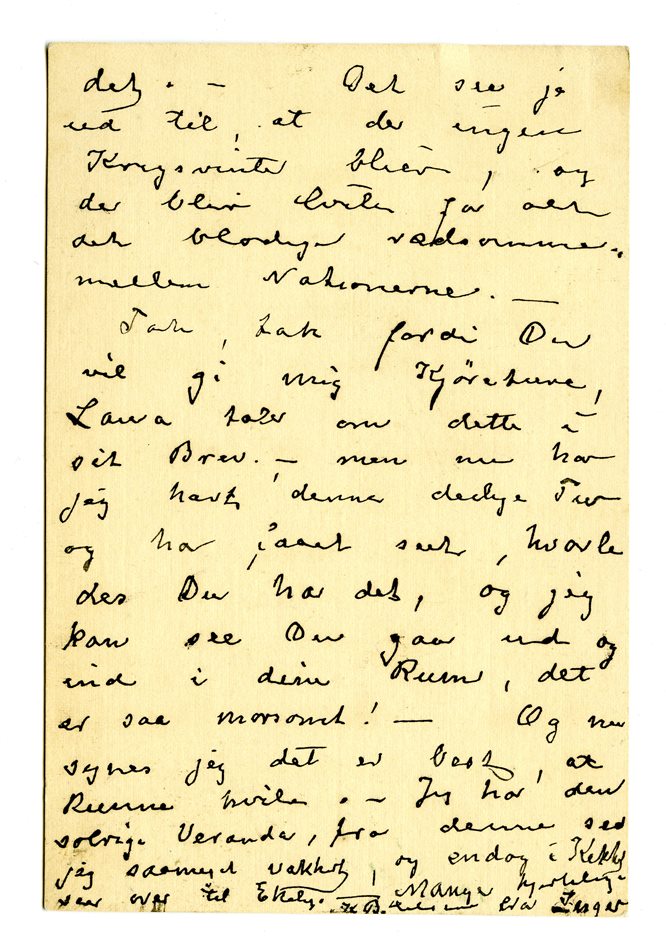 det. – Det see jo
ud til, at der ingen
Krigsvinter bliver, og
der blir hvile for alt
det blodige rædsomme
mellem Nationerne. –
Tak, tak fordi Du
vil gi mig Kjöreture,
Laura taler om dette i
sit Brev. – men nu har
jeg havt denne deilige Tur
og har faaet seet, hvorle
des Du har det, og jeg
kan see Du gaar ud og
ind i dine Rum, det
er saa morsomt! – Og nu
synes jeg det er best, at
Rumme hvile. – Jeg har den
solrige Veranda, fra denne seer
jeg saameget vakkert, og endog i Kikkert
seer over til Ekely. Mange hjertelige
fra Inger